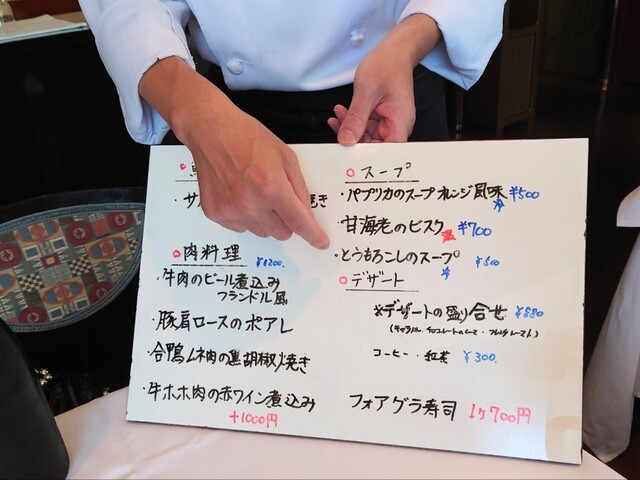 サ
き
肉料理 ¥1200.
・牛肉のビール煮込み
フランドル風
・豚肩ロースのポアレ
・合鴨ムネ肉の黒胡椒焼き
・牛ホホ肉の赤ワイン煮込み
+1000円
スープ
・パプリカのスープオレンジ風味 ¥500
・甘海老のビスク ¥700
・とうもろこしのスープ ¥500
デザート
※デザートの盛り合せ ¥880
コーヒー・紅茶 ¥300.
フォアグラ寿司 1ヶ700円